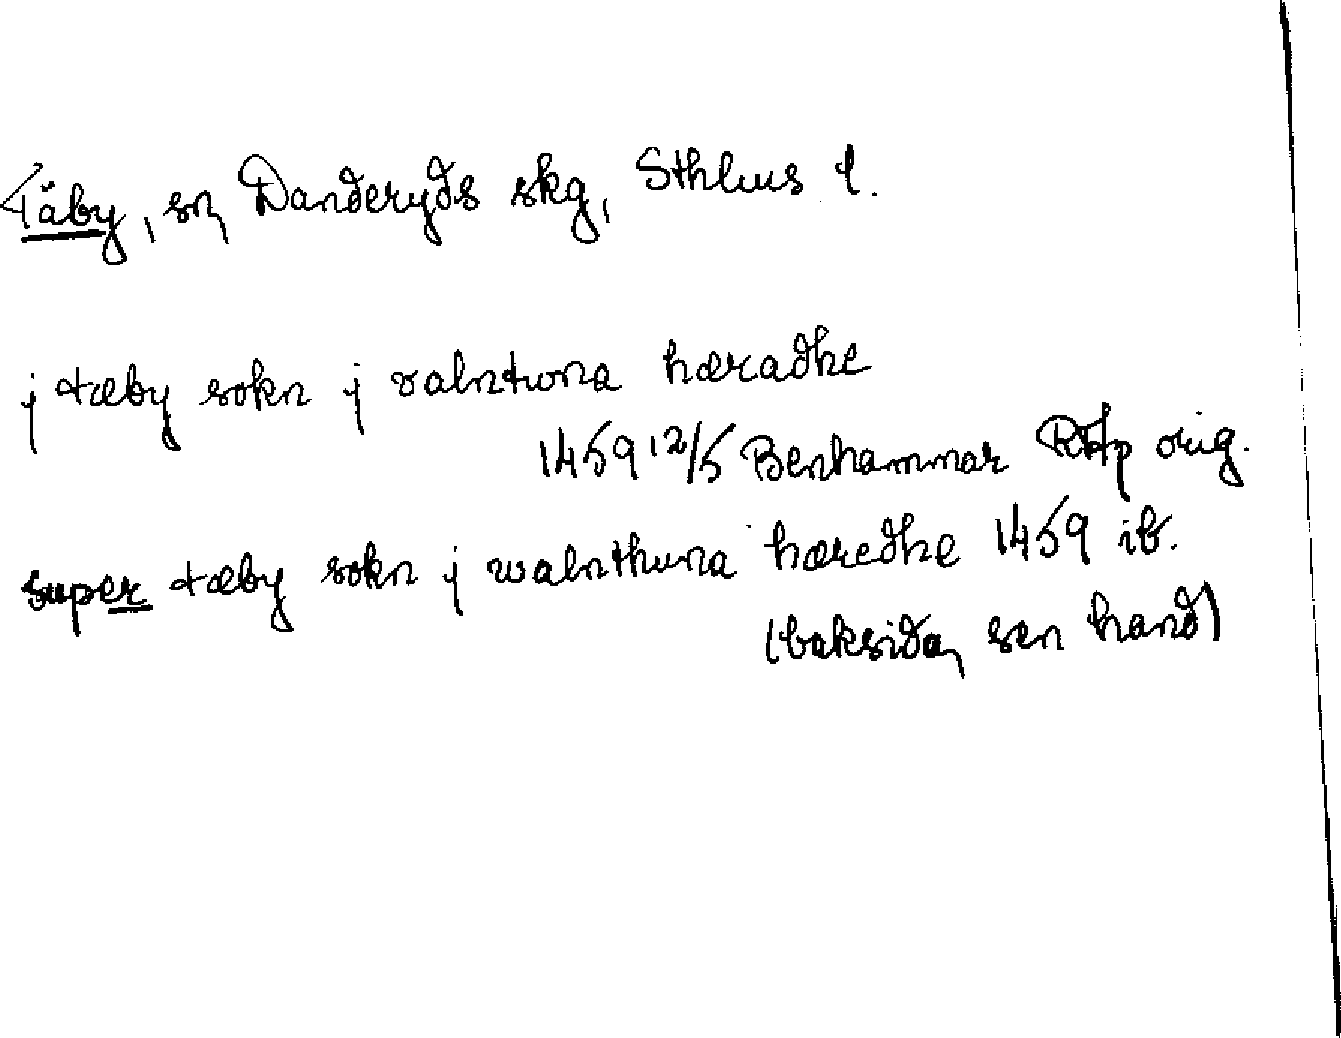 Täby, sn, Danderyds skg, Sthlms l.
j tæby sokn j valntuna hæradhe
1459 12/5 Benhammar RAp orig.
super tæby sokn j walnthuna hæredhe 1459 ib.
(baksida, sen hand)